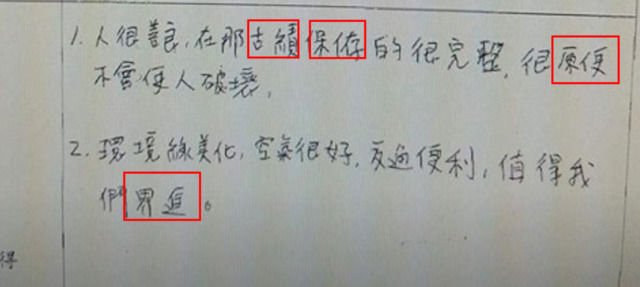 1. 人很善良,在那古績保存的很完整,很原使
不會使人破壞,
2. 環境綠美化,空氣很好,交通便利,值得我
們界進。
得